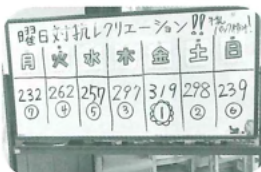 曜日対抗レクリエーション!!
月 火 水 木 金 土 日
232 262 257 297 319 298 239
⑦ ④ ⑤ ③ ① ② ⑥